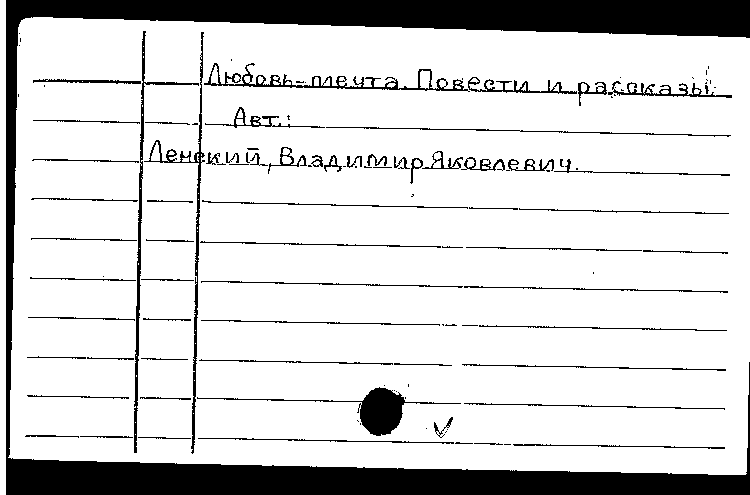 Любовь-мечта. Повести и рассказы.
Авт.:
Ленский, Владимир Яковлевич.